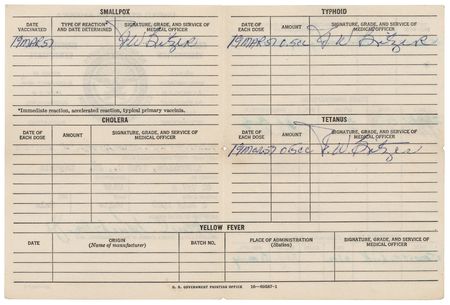 SMALLPOX
DATE VACCINATED TYPE OF REACTION* AND DATE DETERMINED SIGNATURE, GRADE, AND SERVICE OF MEDICAL OFFICER
19MAR57
*Immediate reaction, accelerated reaction, typical primary vaccinia.
TYPHOID
DATE OF EACH DOSE AMOUNT SIGNATURE, GRADE, AND SERVICE OF MEDICAL OFFICER
19MAR57 0.5cc
CHOLERA
DATE OF EACH DOSE AMOUNT SIGNATURE, GRADE, AND SERVICE OF MEDICAL OFFICER
TETANUS
DATE OF EACH DOSE AMOUNT SIGNATURE, GRADE, AND SERVICE OF MEDICAL OFFICER
19MAR57 0.5cc
YELLOW FEVER
DATE ORIGIN (Name of manufacturer) BATCH NO. PLACE OF ADMINISTRATION (Station) SIGNATURE, GRADE, AND SERVICE OF MEDICAL OFFICER
U. S. GOVERNMENT PRINTING OFFICE 16—49587-1